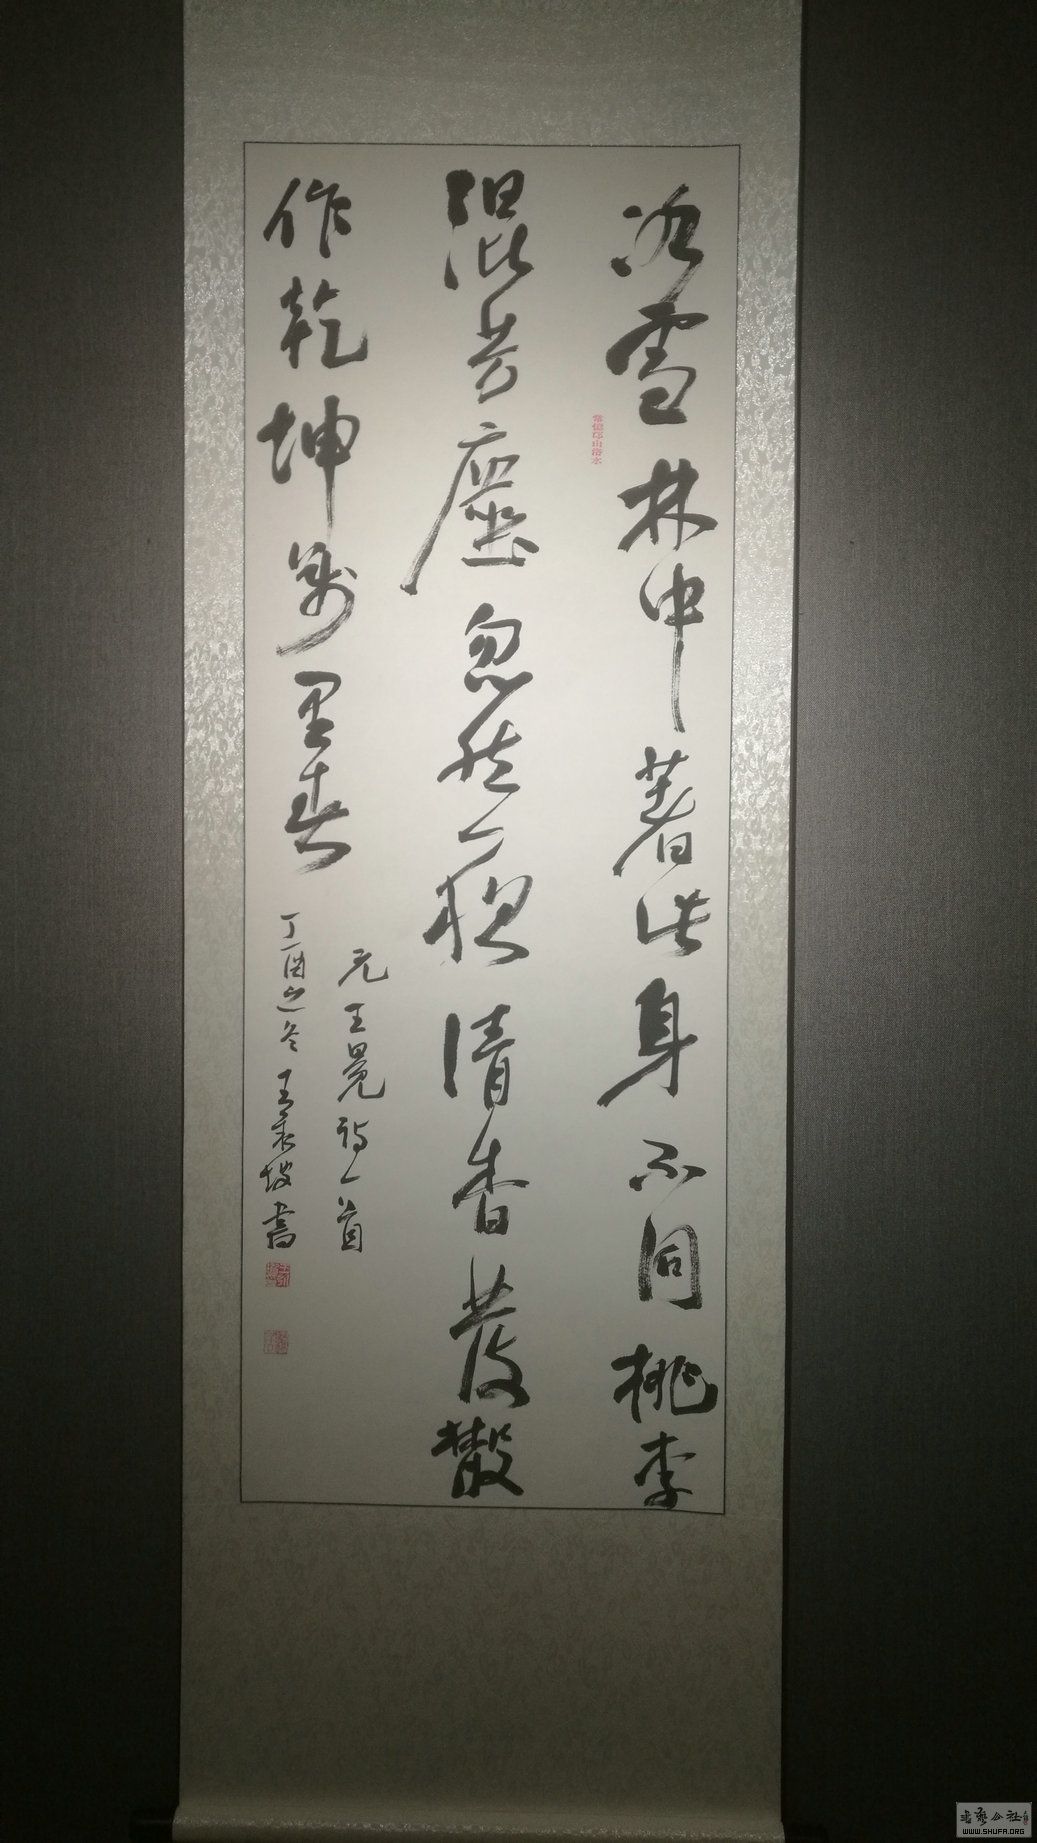 冰雪林中著此身不同桃李
混芳塵忽然一夜清香發散
作乾坤萬里春
元王冕詩一首
丁酉之冬王永坡書
常憶邙山洛水
書藝公社
WWW.SHUFA.ORG